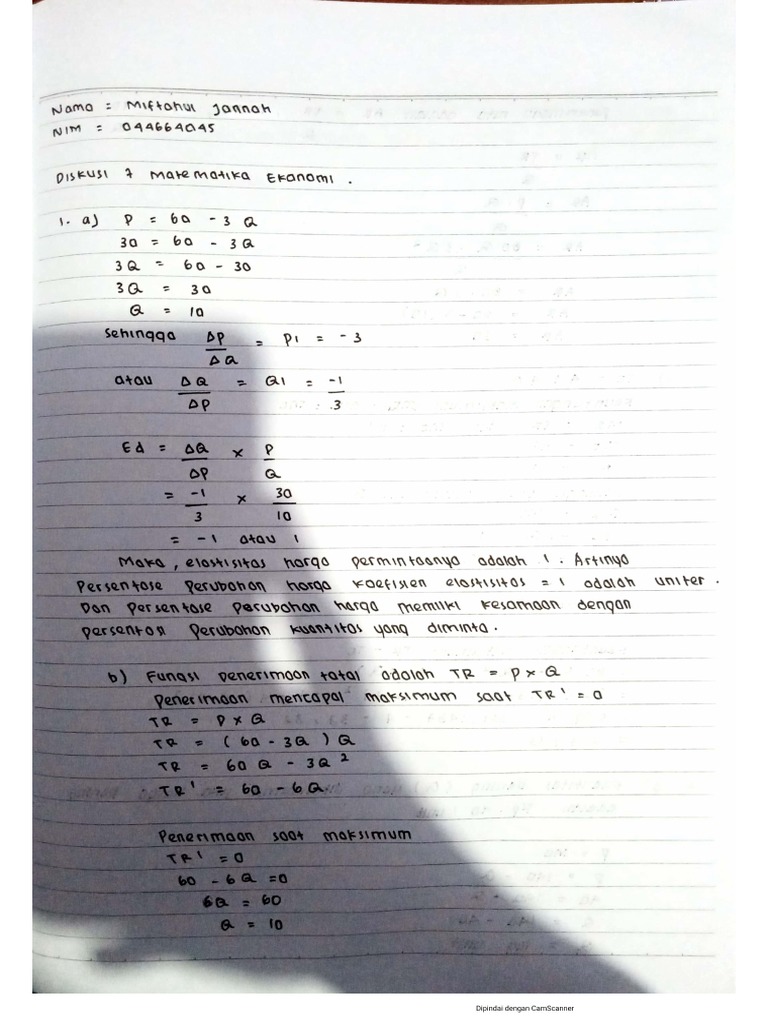 Nama = Miftahul Jannah
NIM = 044664045
Diskusi 7 Matematika Ekonomi.
1. a) P = 60 - 3Q
30 = 60 - 3Q
3Q = 60 - 30
3Q = 30
Q = 10
Sehingga ΔP/ΔQ = P1 = -3
atau ΔQ/ΔP = Q1 = -1/3
Ed = ΔQ/ΔP × P/Q
= -1/3 × 30/10
= -1 atau 1
Maka, elastisitas harga permintaanya adalah 1. Artinya
Persentase perubahan harga koefisien elastisitas = 1 adalah uniter.
Dan persentase perubahan harga memiliki kesamaan dengan
persentasi perubahan kuantitas yang diminta.
b) Fungsi penerimaan total adalah TR = P × Q
Penerimaan mencapai maksimum saat TR' = 0
TR = P × Q
TR = (60 - 3Q) Q
TR = 60Q - 3Q²
TR' = 60 - 6Q
Penerimaan saat maksimum
TR' = 0
60 - 6Q = 0
6Q = 60
Q = 10
Dipindai dengan CamScanner